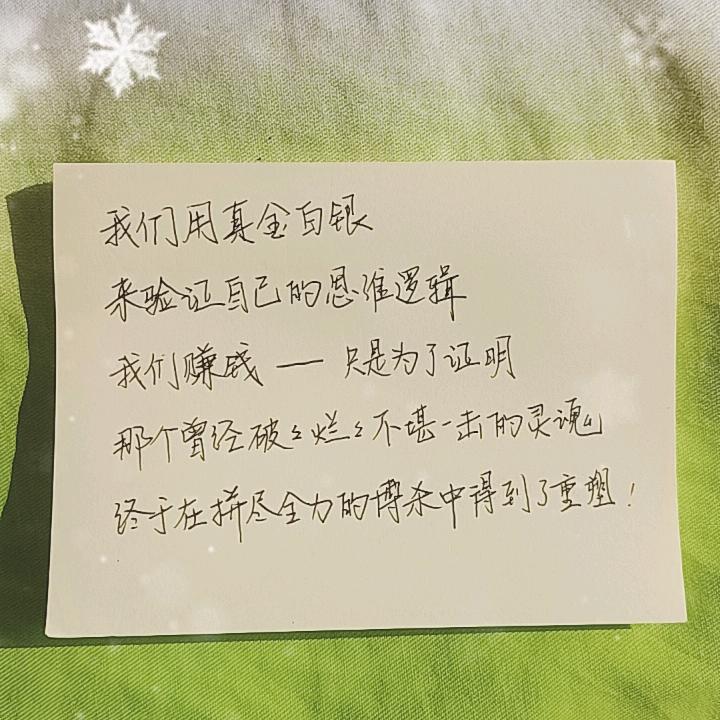 我们用真金白银
来验证自己的思维逻辑
我们赚钱 —— 只是为了证明
那个曾经破破烂烂不堪一击的灵魂
终于在拼尽全力的博杀中得到了重塑！